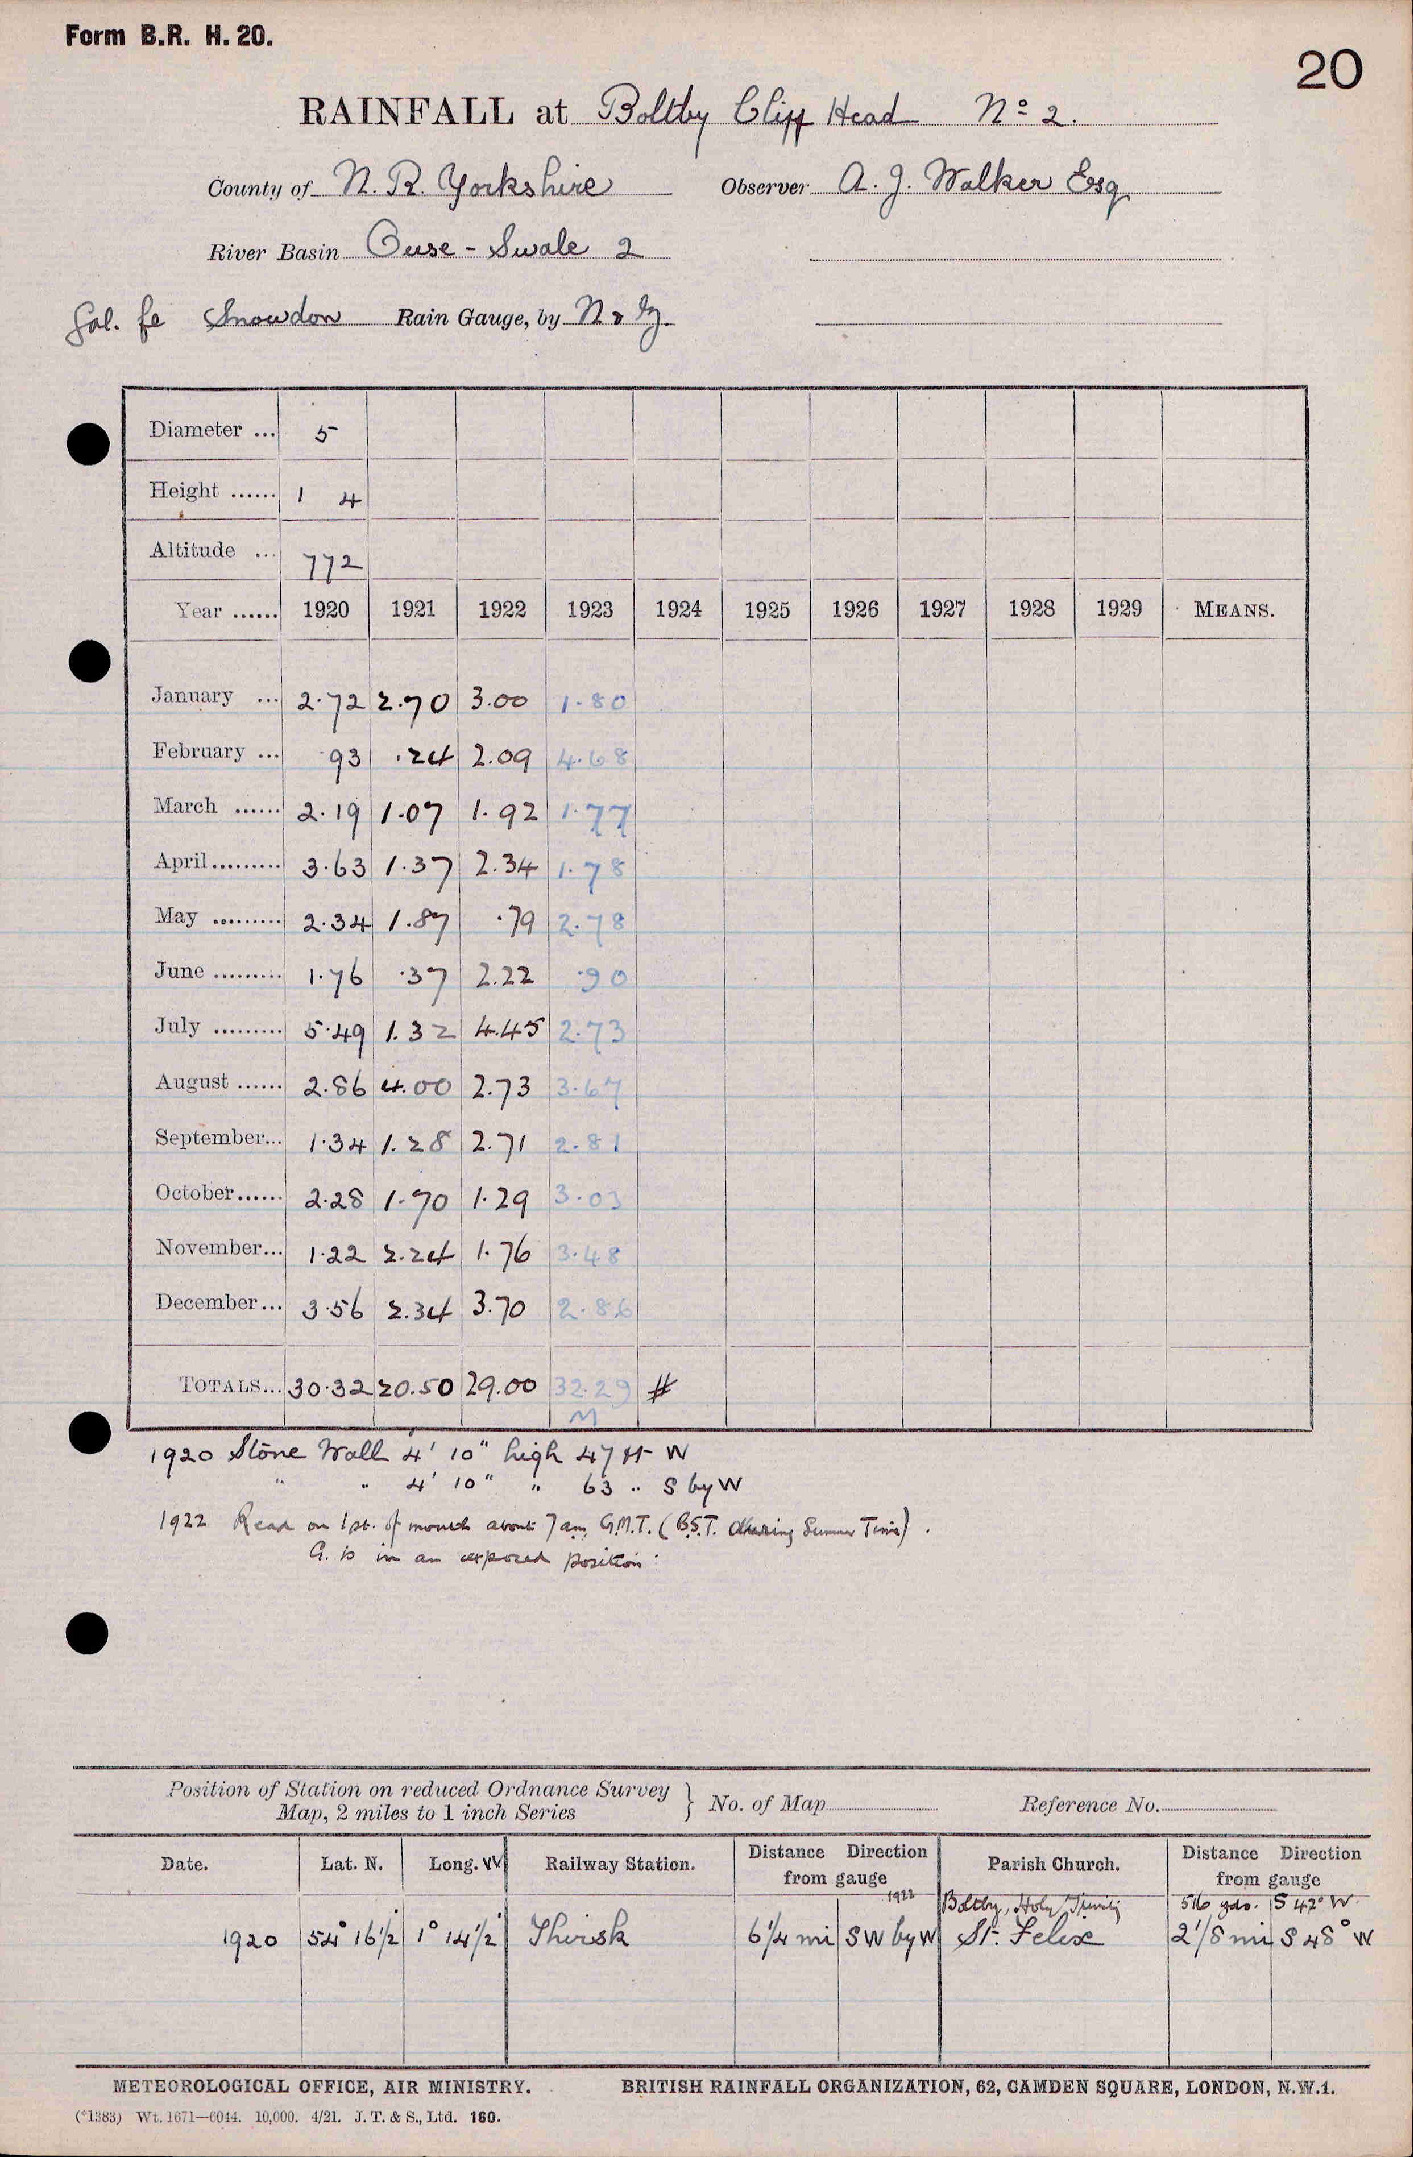 Form B.R. H. 20.
20
RAINFALL at Boltby Cliff Head No 2.
County of N. R. Yorkshire Observer A. J. Walker Esq
River Basin Ouse - Swale 2
Gal. fe Snowdon Rain Gauge, by N & Z
Diameter ... 5
Height ...... 1 4
Altitude ... 772
Year ...... 1920 1921 1922 1923 1924 1925 1926 1927 1928 1929 MEANS.
January ... 2.72 2.70 3.00 1.80
February ... .93 .24 2.09 4.68
March ...... 2.19 1.07 1.92 1.77
April ......... 3.63 1.37 2.34 1.78
May ......... 2.34 1.87 .79 2.78
June ......... 1.76 .37 2.22 .90
July ......... 5.49 1.32 4.45 2.73
August ...... 2.86 4.00 2.73 3.67
September... 1.34 1.28 2.71 2.81
October...... 2.28 1.70 1.29 3.03
November... 1.22 2.24 1.76 3.48
December... 3.56 2.34 3.70 2.86
TOTALS... 30.32 20.50 29.00 32.29 #
M
1920 Stone Wall 4' 10" high 47 ft W
" " 4' 10" " 63 " S by W
1922 Read on 1st. of month about 7am G.M.T. (B.S.T. during Summer Time).
G. is in an exposed position.
Position of Station on reduced Ordnance Survey Map, 2 miles to 1 inch Series } No. of Map Reference No.
Date. Lat. N. Long. W Railway Station. Distance Direction from gauge Parish Church. Distance Direction from gauge
1922 Boltby, Holy Trinity 516 yds. S 42° W
1920 54° 16½' 1° 14½' Thirsk 6¼ mi SW by W St. Felix 2⅛ mi S 48° W
METEOROLOGICAL OFFICE, AIR MINISTRY. BRITISH RAINFALL ORGANIZATION, 62, CAMDEN SQUARE, LONDON, N.W.1.
(*1383) Wt. 1671—6044. 10,000. 4/21. J. T. & S., Ltd. 160.